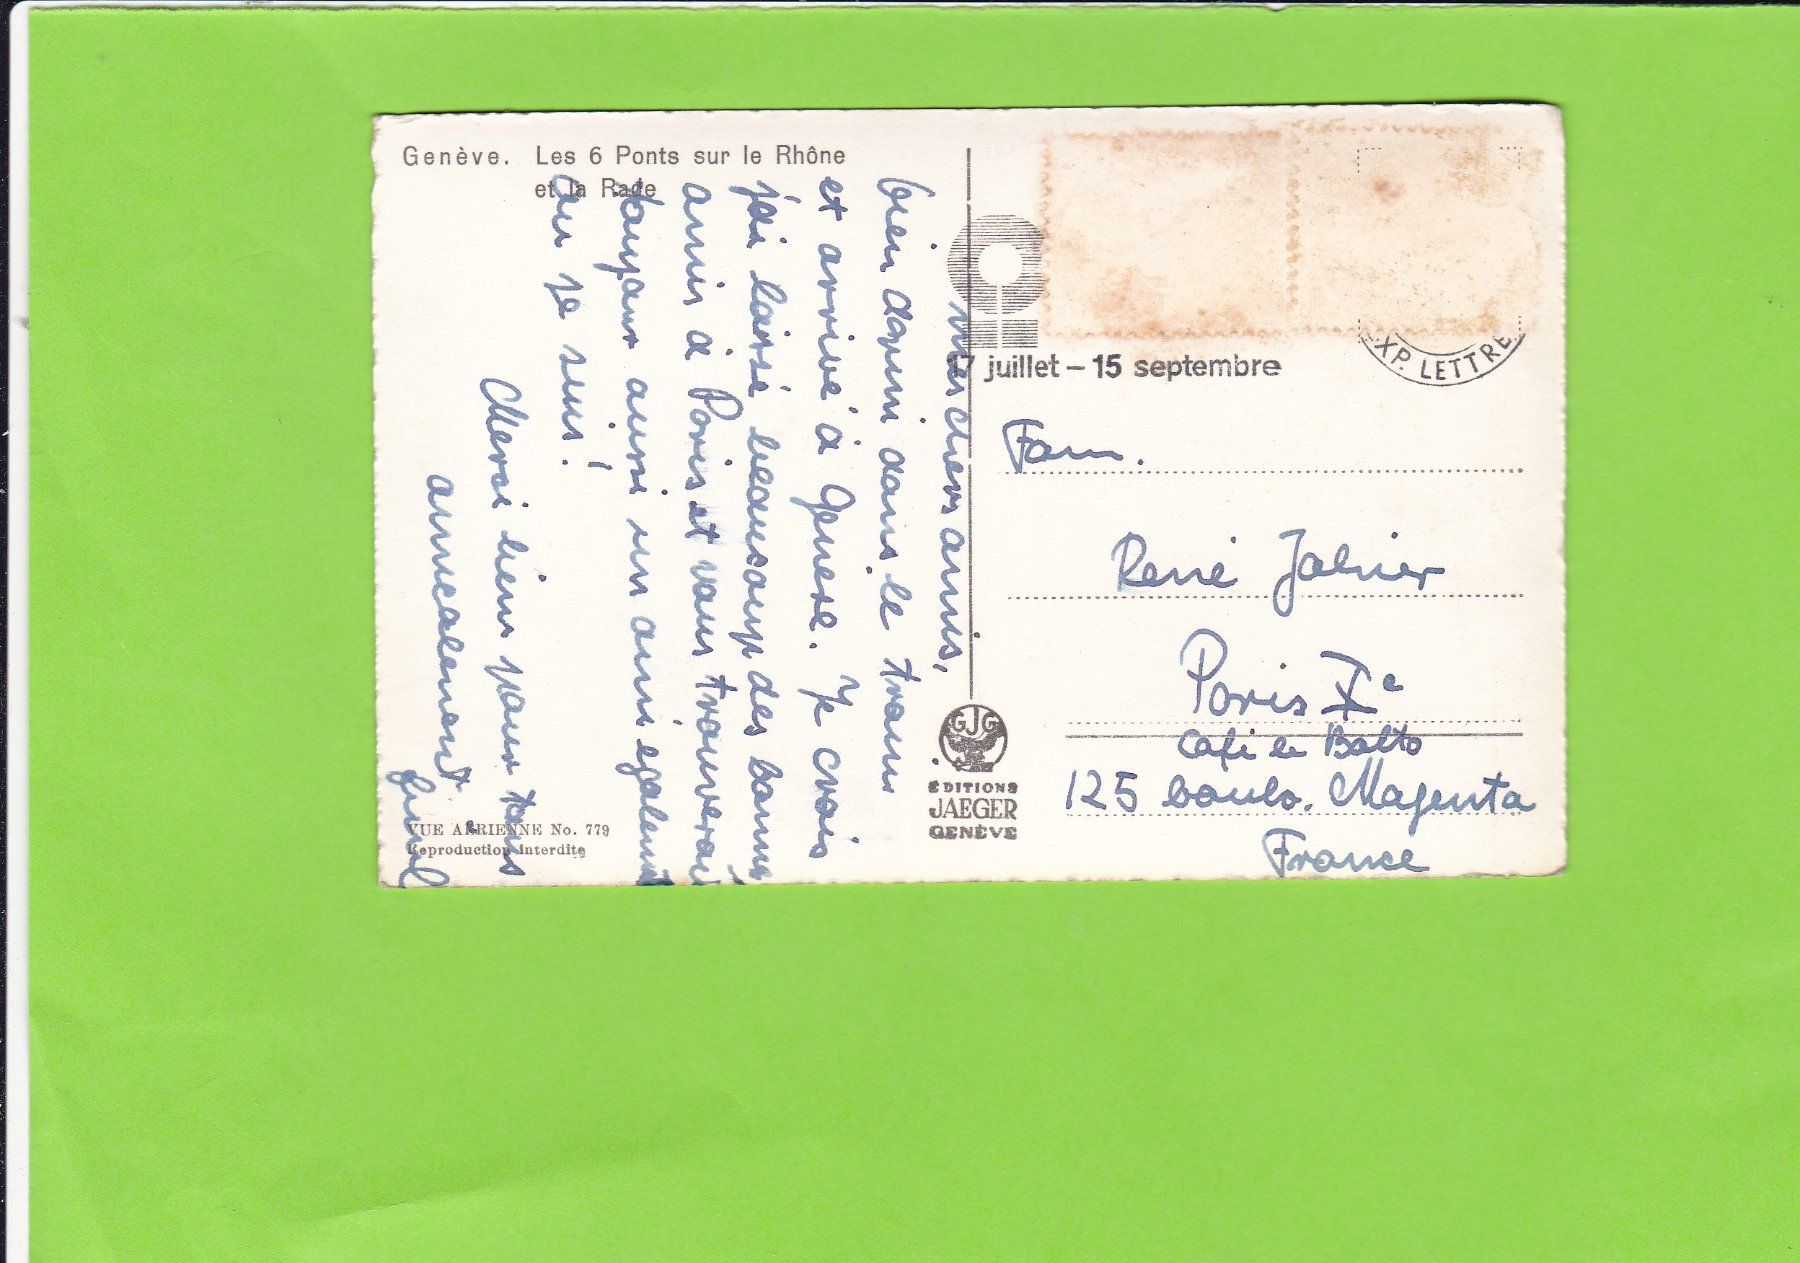 Genève. Les 6 Ponts sur le Rhône
et la Rade
mes chers amis,
bien dormi dans le train
et arrivé à Genève. Je crois
j'ai laissé beaucoup des bonns
amis à Paris et vous trouverai
toujour aussi un ami egalement
ou je suis!
Merci bien pour tous
amicalement
VUE AÉRIENNE No. 779
Reproduction interdite
17 juillet – 15 septembre
XP. LETTRE
GJG
EDITIONS
JAEGER
GENÈVE
Fam.
René Jalnier
Paris Xe
Café le Balto
125 boulv. Magenta
France